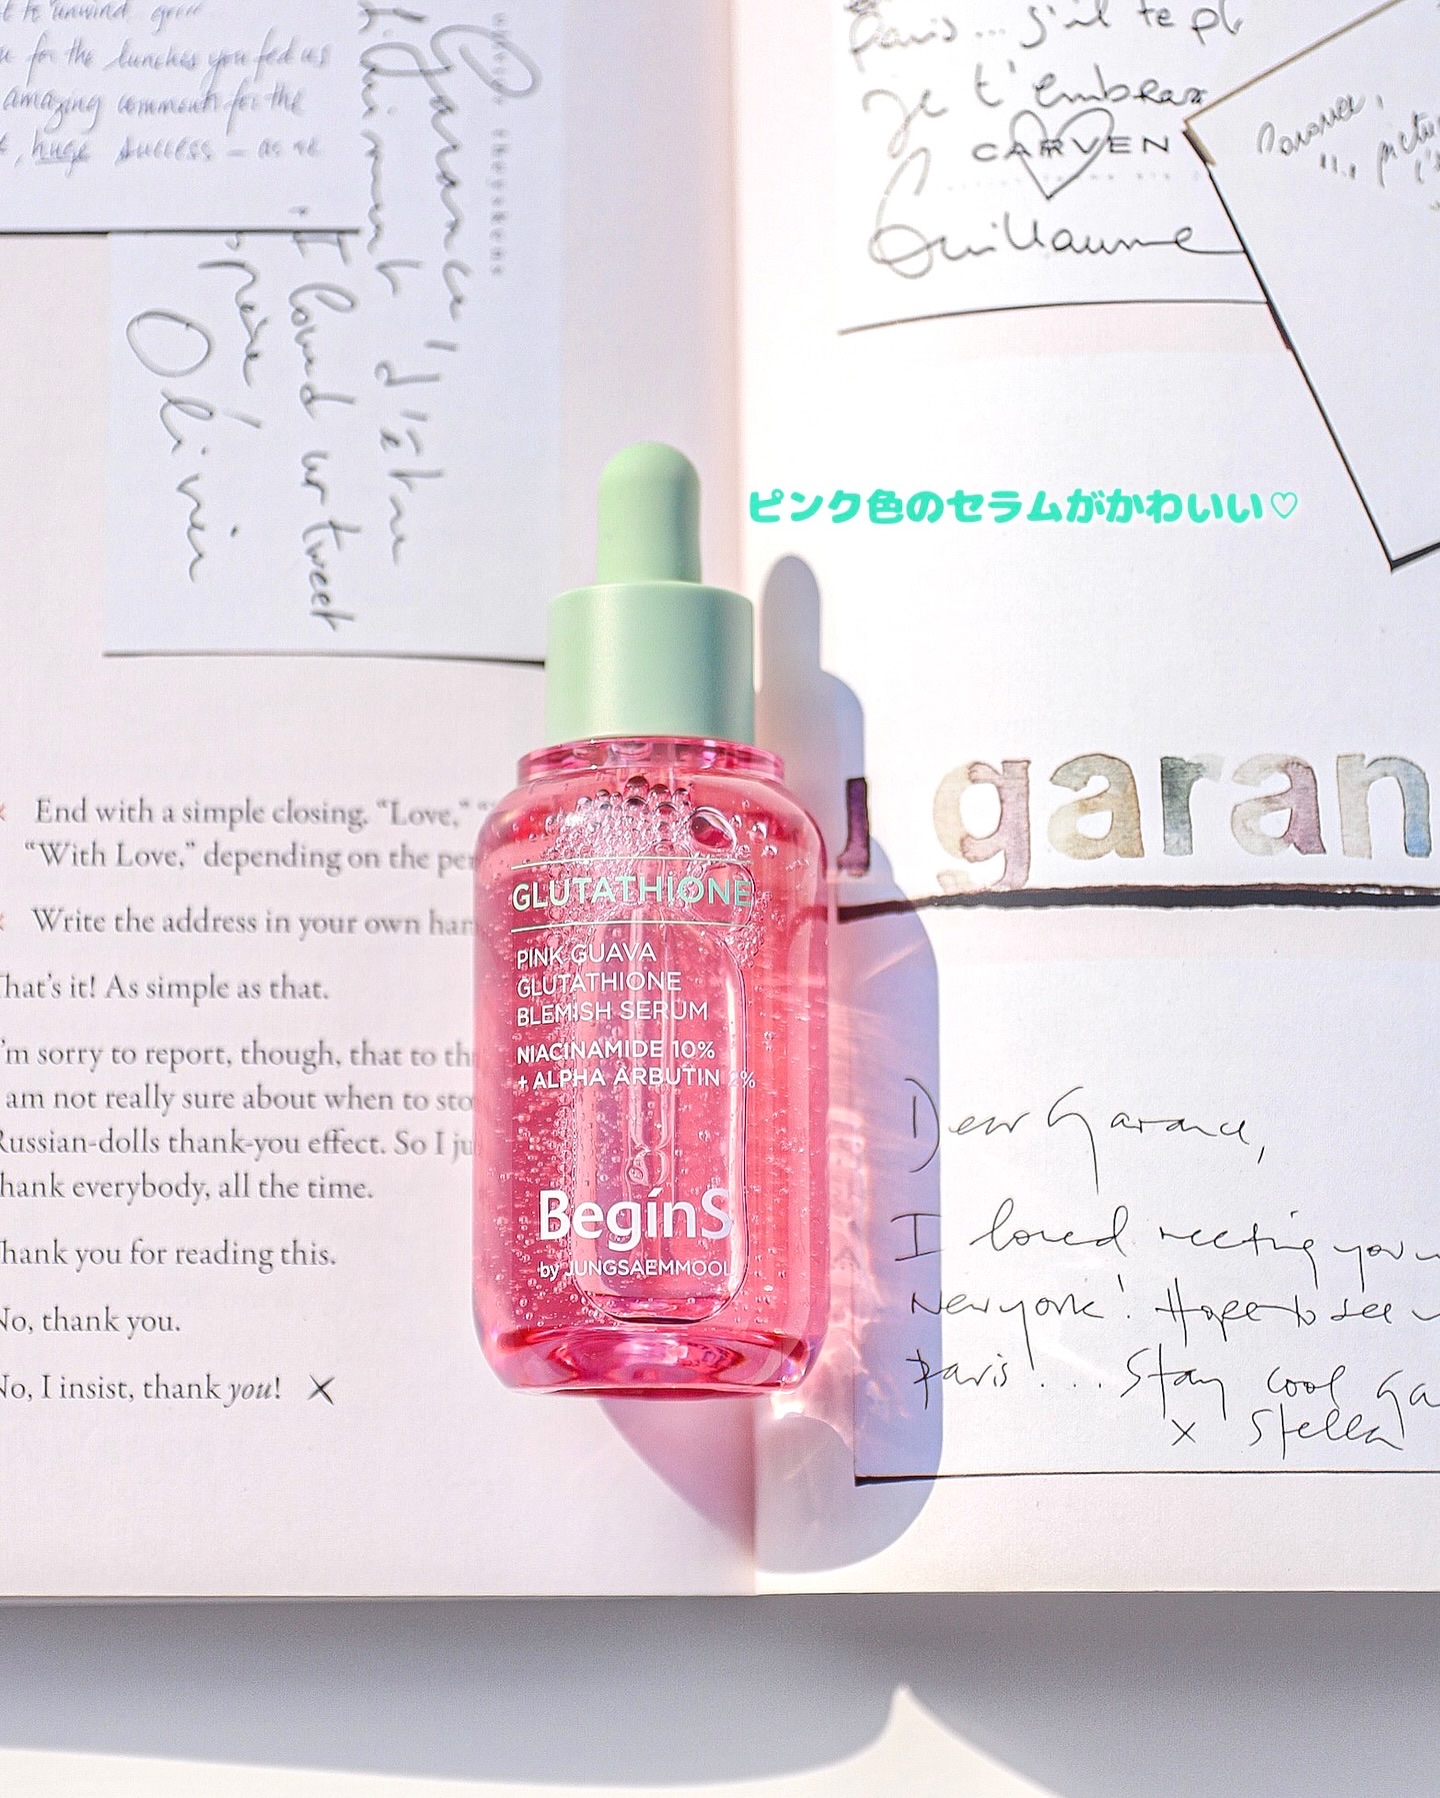 for the lunches you fed us
amazing comments for the
huge success — as we
Garance
I loved ur tweet
Paris... s'il te pl
je t'embrasse
CARVEN
Guillaume
ピンク色のセラムがかわいい♡
garan
End with a simple closing. “Love,”
“With Love,” depending on the
Write the address in your own
That’s it! As simple as that.
I’m sorry to report, though, that to
am not really sure about when to
Russian-dolls thank-you effect. So I
thank everybody, all the time.
Thank you for reading this.
No, thank you.
No, I insist, thank you! X
GLUTATHIONE
PINK GUAVA
GLUTATHIONE
BLEMISH SERUM
NIACINAMIDE 10%
+ ALPHA ARBUTIN 2%
BegínS
by JUNGSAEMMOOL
Dear Garance,
I loved meeting you
New York! Hope to see
Paris!... Stay cool Ga
x Stella